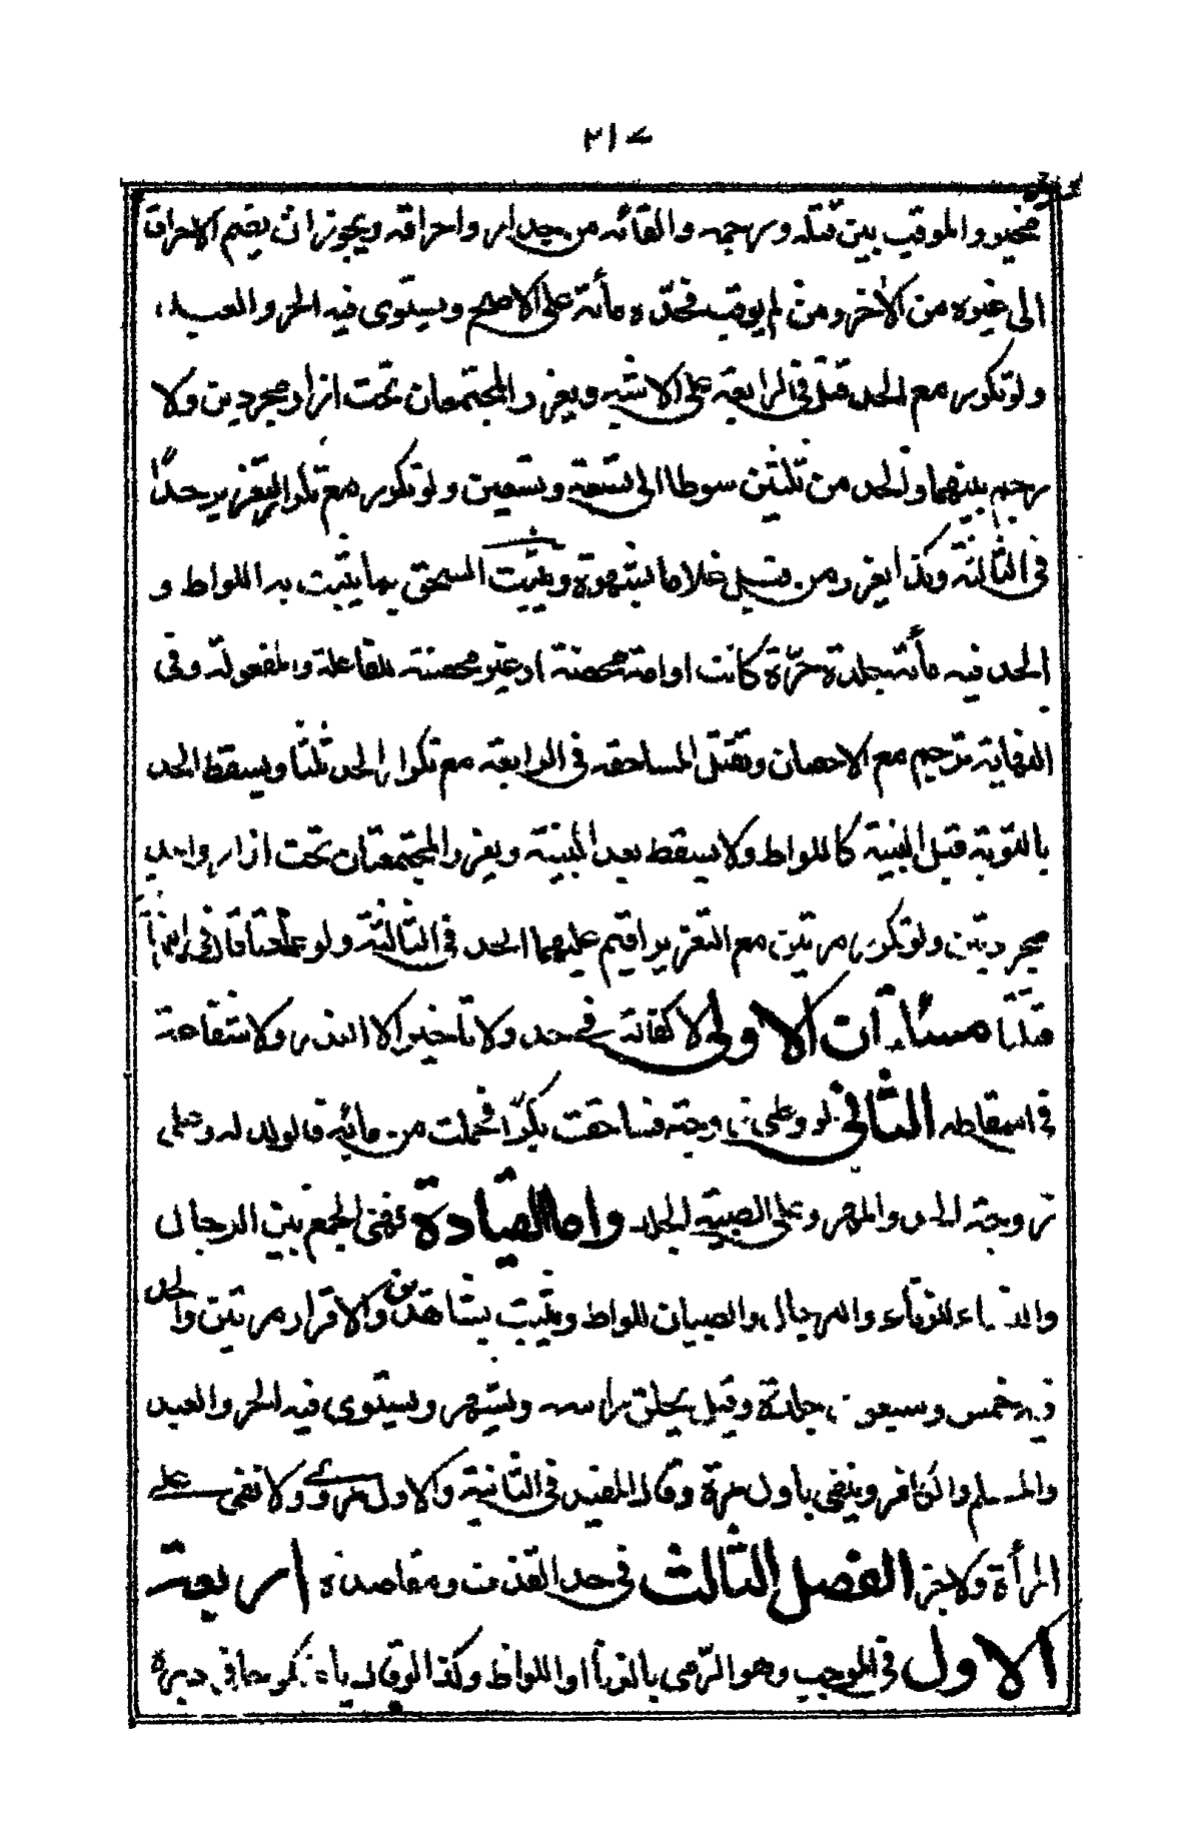 ٢١٧
مخير والموقب بين قتله ورجمه والقائه من جدار واحراقه ويجوز ان يضم الاحراق
الى غيره من الاخر ومن لم يوقب فحدّه مأئة على الاصح ويستوى فيه الحر والعبد
ولو تكرر مع الحد قتل في الرابعة على الاشبه ويعزر المجتمعان تحت ازار مجردين ولا
رحم بينهما ولحد من ثلثين سوطا الى تسعة وتسعين ولو تكرر مع تكرار التعزير حدّا
في الثالثة وكذا يعزر من قبل غلاما بشهوة ويثبت السحق بما يثبت به اللواط و
الحد فيه مأئة جلدة حرّة كانت او امة محصنة او غير محصنة للفاعلة والمفعولة وفى
النهاية ترجم مع الاحصان وتقتل المساحقه في الرابعة مع تكرار الحد ثلثا ويسقط الحد
بالتوبة قبل البينة كاللواط ولا يسقط بعد البينة ويعزر المجتمعتان تحت ازار واحد
مجردتين ولو تكرر مرتين مع التعزير اقيم عليهما الحد في الثالثة ولو عادتا قال في
قتلتا مسئلتان الاولى لا كفالة في حد ولا تأخير الا لعذر ولا شفاعة
في اسقاطه الثاني لو وطى زوجته فساحقت بكرّا فحملت من مائه فالولد له وعلى
زوجته الحد والمهر وعلى الصبية الجلد واما القيادة فهى الجمع بين الرجال
والنساء للزناء والرجال والصبيان للواط ويثبت بشاهدين والاقرار مرتين والحد
فيه خمس وسبعون جلدة وقيل يحلق رأسه ويشهر ويستوى فيه الحر والعبد
والمسلم والكافر وينفى باول مرة وقال المفيد في الثانية والاول مروى ولا نفى على
المرأة ولا جز الفصل الثالث في حد القذف ومقاصده اربعة
الاول في الموجب وهو الرّمى بالزنا او اللواط وكذا لو قال يا منكوحا في دبره